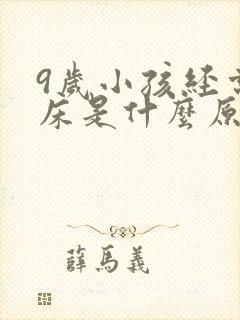 9歲小孩經常
床是什麼原
薛馬義